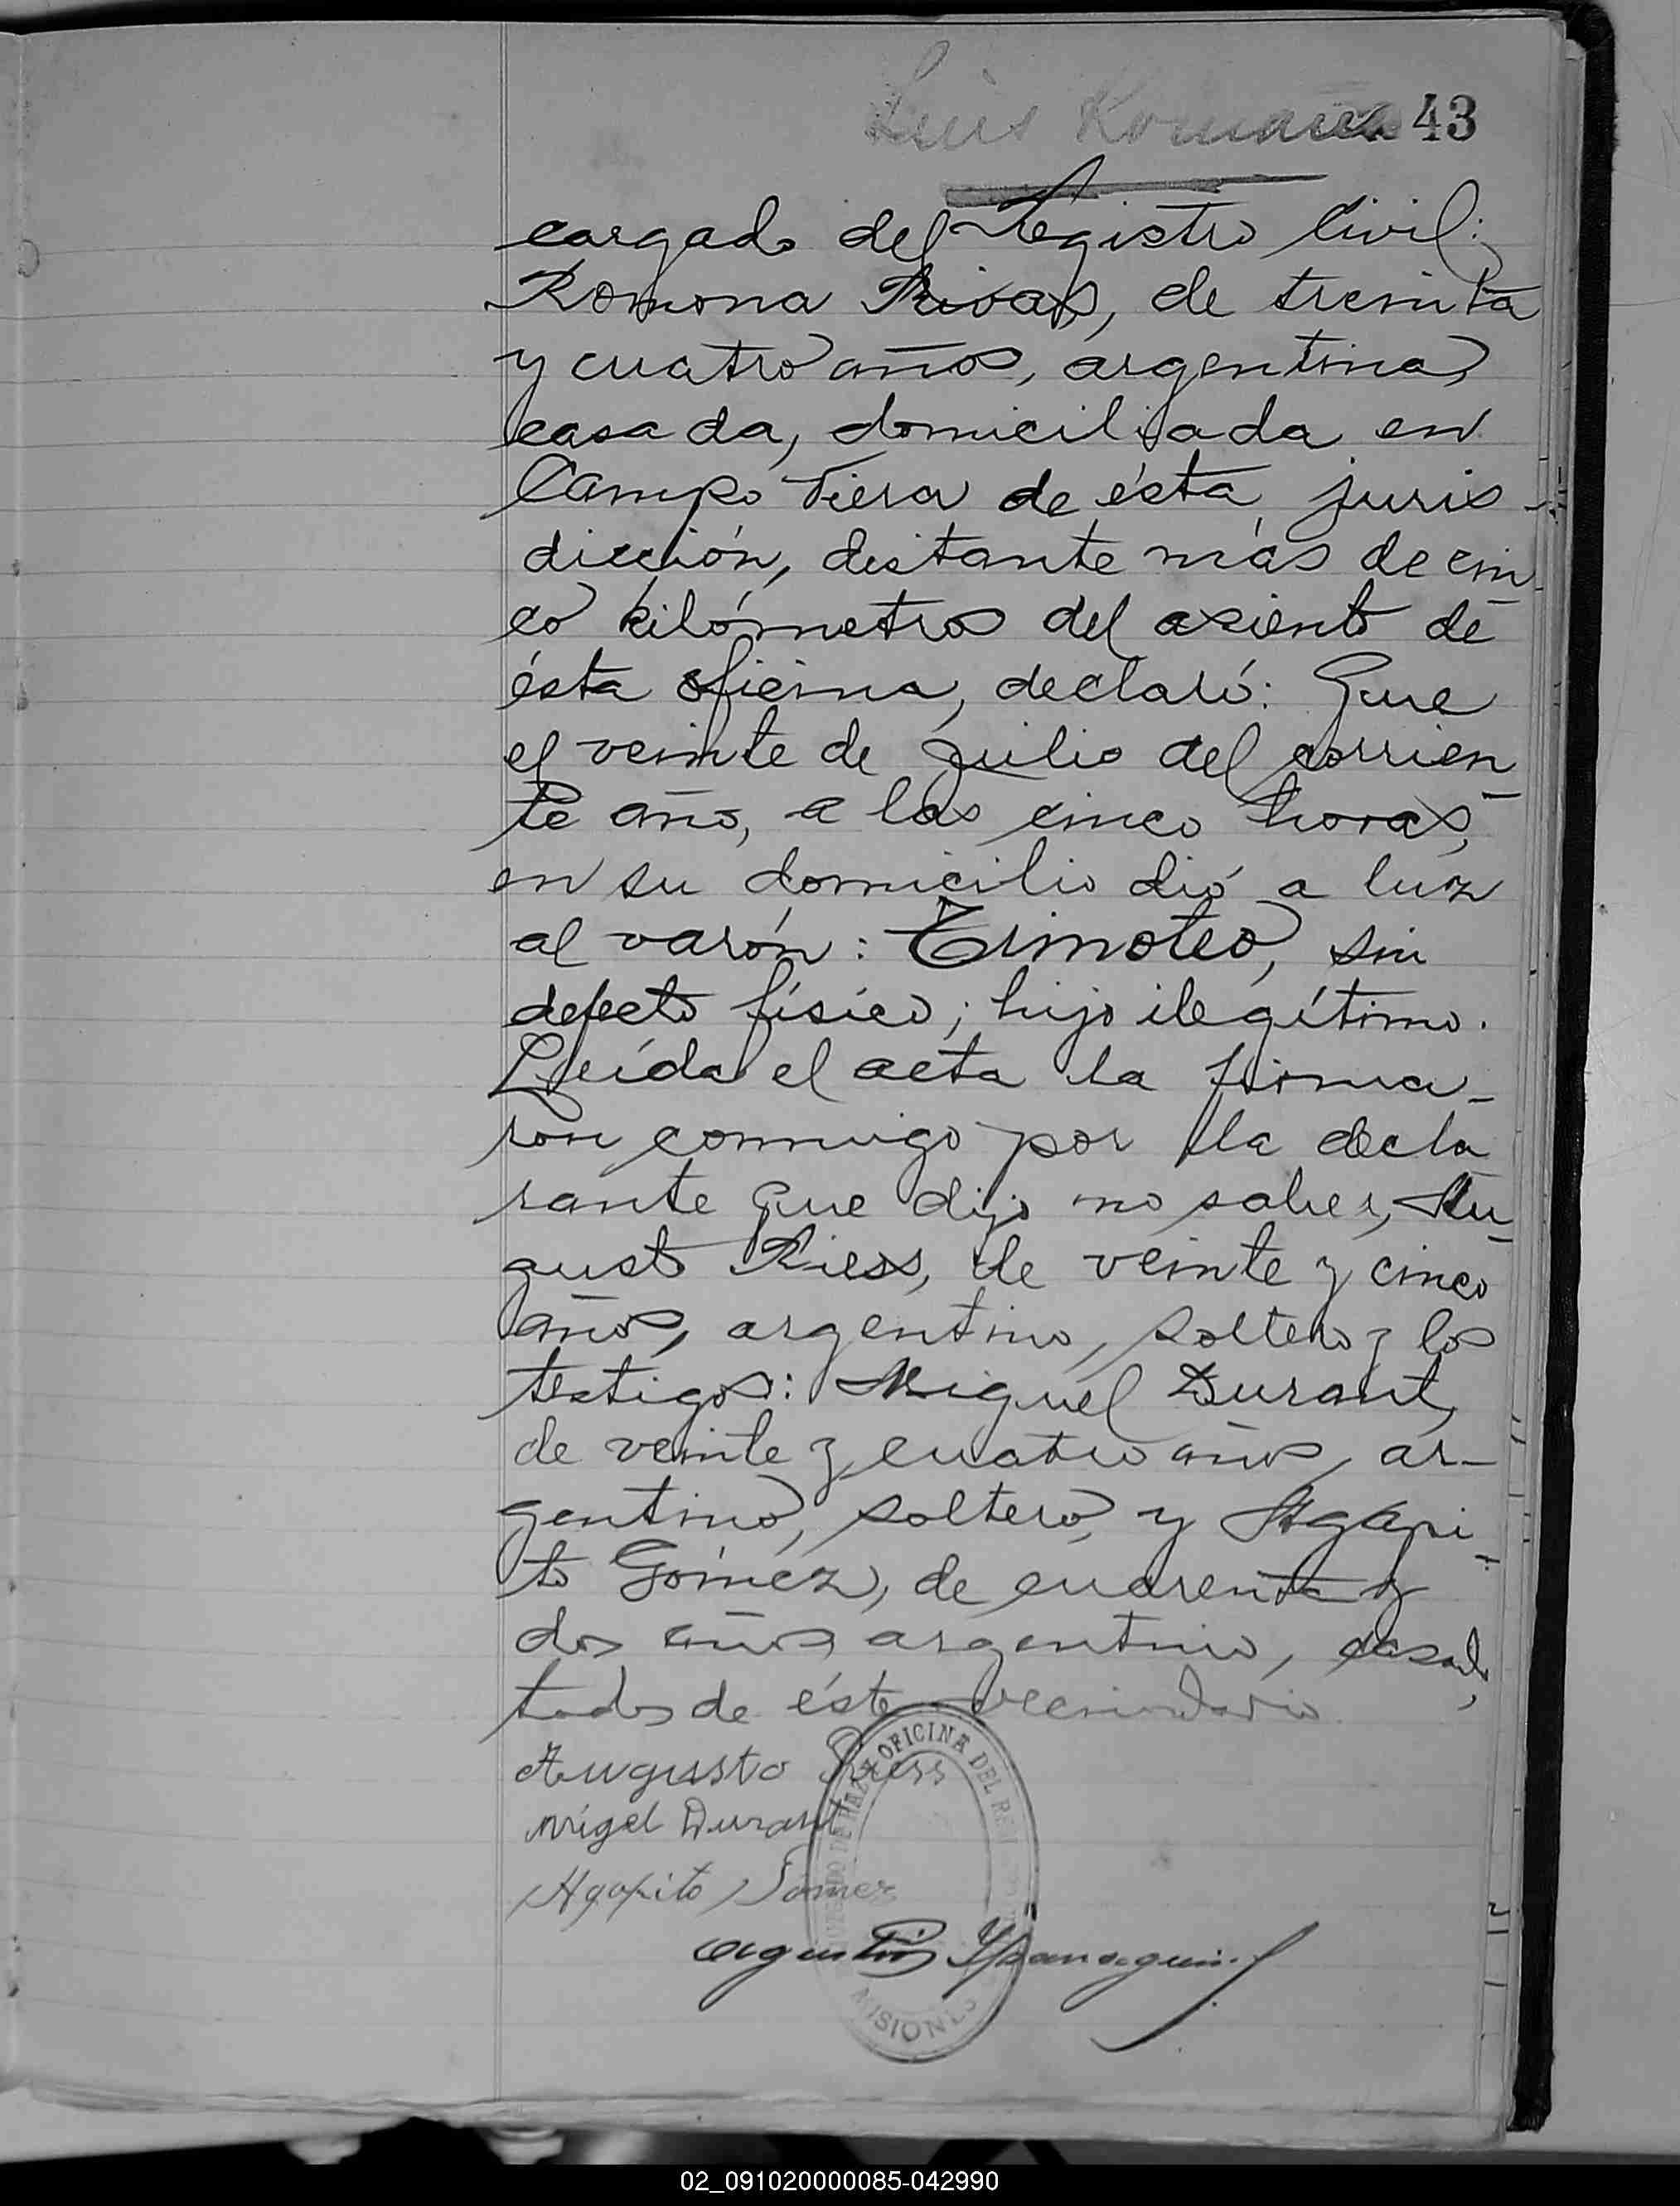 Luis Romaña 43
cargado del Registro Civil:
Romona Rivas, de treinta
y cuatro años, argentina,
casada, domiciliada en
Campo Viera de ésta juris-
dicción, distante más de cin-
co kilómetros del asiento de
ésta oficina, declaró: Que
el veinte de julio del corrien-
te año, a las cinco horas,
en su domicilio dió a luz
al varón: Timoteo, sin
defecto físico; hijo ilegítimo.
Leída el acta la firma-
ron conmigo por la decla-
rante que dijo no saber, Au-
gusto Riess, de veinte y cinco
años, argentino, soltero y los
testigos: Miguel Durant,
de veinte y cuatro años, ar-
gentino, soltero, y Agapi-
to Gómez, de cuarenta y
dos años argentino, casado,
todos de éste vecindario
Augusto Riess
Migel Durant
Agapito Gomez
OFICINA DEL
MISIONES
02_091020000085-042990